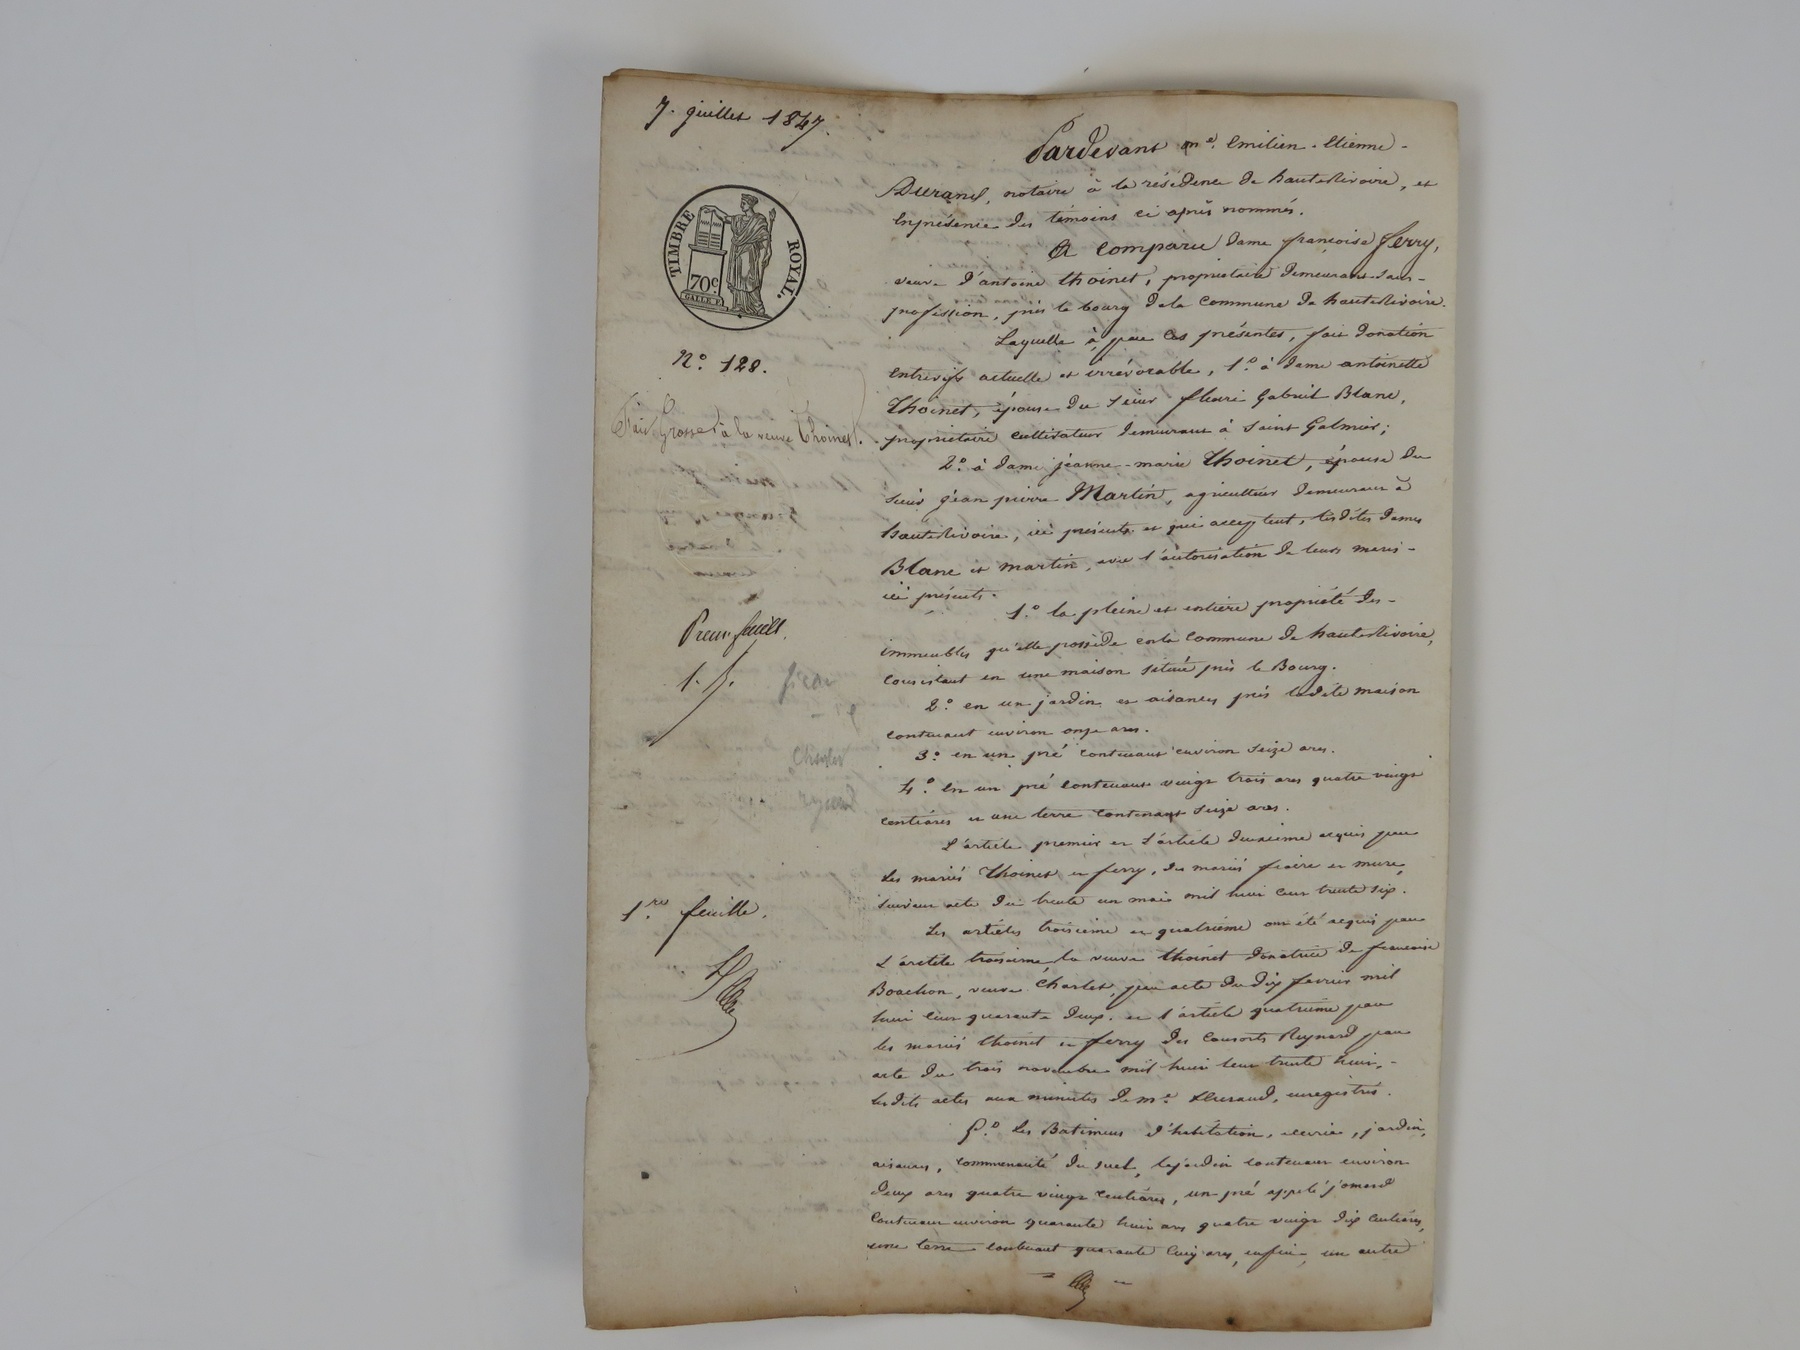 7. juillet 1847.
TIMBRE ROYAL.
70c.
GALLE F.
N.º 128.
Fait Grosse à la veuve Thoinet.
1.re feuille.
Pardevant me. Emilien-Etienne-
Durand, notaire à la résidence de hauterivoire, et
enprésence des témoins ci après nommés.
A comparu dame françoise ferry,
veuve d'antoine thoinet, propriétaire demeurant sans-
profession, près le bourg dela commune de hauterivoire.
Laquelle à par ces présentes, fait donation
entrevifs actuelle et irrévocable, 1.º à dame antoinette
Thoinet, épouse du sieur fleuri Gabriel Blanc,
propriétaire cultivateur demeurant à saint Galmier;
2.º à dame jeanne-marie Thoinet, épouse du
sieur jean pierre Martin, agriculteur demeurant à
hauterivoire, ici présents et qui acceptent, lesdites dames
Blanc et martin, avec l'autorisation de leurs maris-
ici présents.
1.º la pleine et entière propriété des-
immeubles qu'elle possède en la commune de hauterivoire,
consistant en une maison située près le Bourg.
2.º en un jardin et aisances près ladite maison
contenant environ onze ares.
3.º en un pré contenant environ seize ares.
4.º en un pré contenant vingt trois ares quatre vingt
centiares et une terre contenant seize ares.
L'article premier et l'article deuxième acquis par
les mariés Thoinet et ferry, des mariés et mure,
suivant acte du trente un mai mil huit cent trente six.
Les articles troisième et quatrième ont été acquis par
L'article troisième la veuve thoinet donatrice de francoise
Boachon, veuve Charlet, par acte du dix février mil
huit cent quarante deux. et l'article quatrième par
les mariés thoinet et ferry des consorts Reynard par
acte du trois novembre mil huit cent trente huit,-
lesdits actes aux minutes de me. Durand, enregistrés.
5.º les Batimens d'habitation, écurie, jardin,
aisances, communauté du suel, le jardin contenant environ
deux ares quatre vingt centiares, un pré appelé jomard
contenant environ quarante huit ares quatre vingt dix centiares,
une terre contenant quarante cinq ares, enfin, un autre